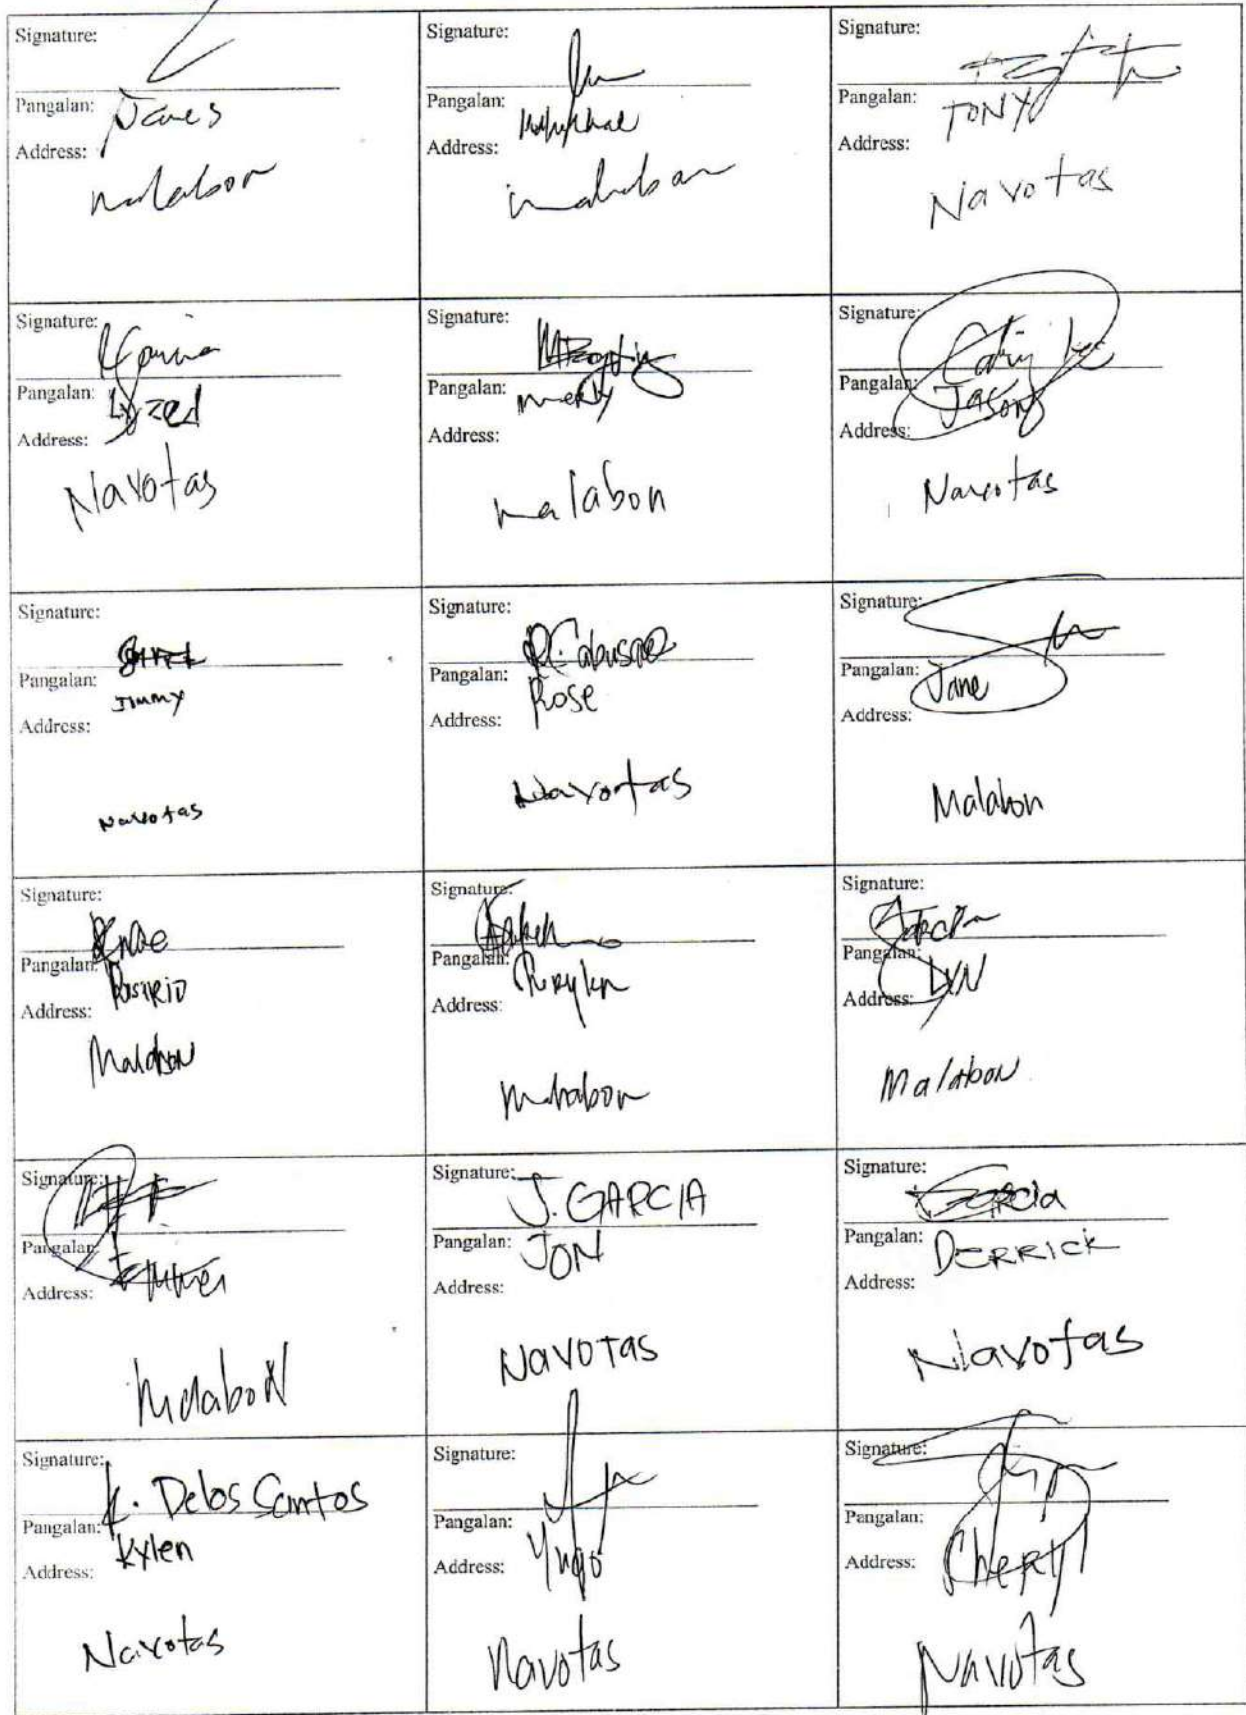 Signature:
Pangalan: James
Address:
malabon
Signature:
Pangalan:
Address:
malabon
Signature:
Pangalan: TONY
Address:
Navotas
Signature:
Pangalan: Lyzed
Address:
Navotas
Signature:
Pangalan: merly
Address:
malabon
Signature:
Pangalan: Jason
Address:
Navotas
Signature:
Pangalan: Jimmy
Address:
Navotas
Signature:
Pangalan: Rose
Address:
Navotas
Signature:
Pangalan: Jane
Address:
Malabon
Signature:
Pangalan: ROSARIO
Address:
Malabon
Signature:
Pangalan:
Address:
Malabon
Signature: Garcia
Pangalan: LYN
Address:
Malabon
Signature:
Pangalan:
Address:
Malabon
Signature: J. GARCIA
Pangalan: JON
Address:
NAVOTAS
Signature: Garcia
Pangalan: DERRICK
Address:
Navotas
Signature: K. Delos Santos
Pangalan: Kylen
Address:
Navotas
Signature:
Pangalan: Yugo
Address:
Navotas
Signature:
Pangalan: Cheryl
Address:
Navotas